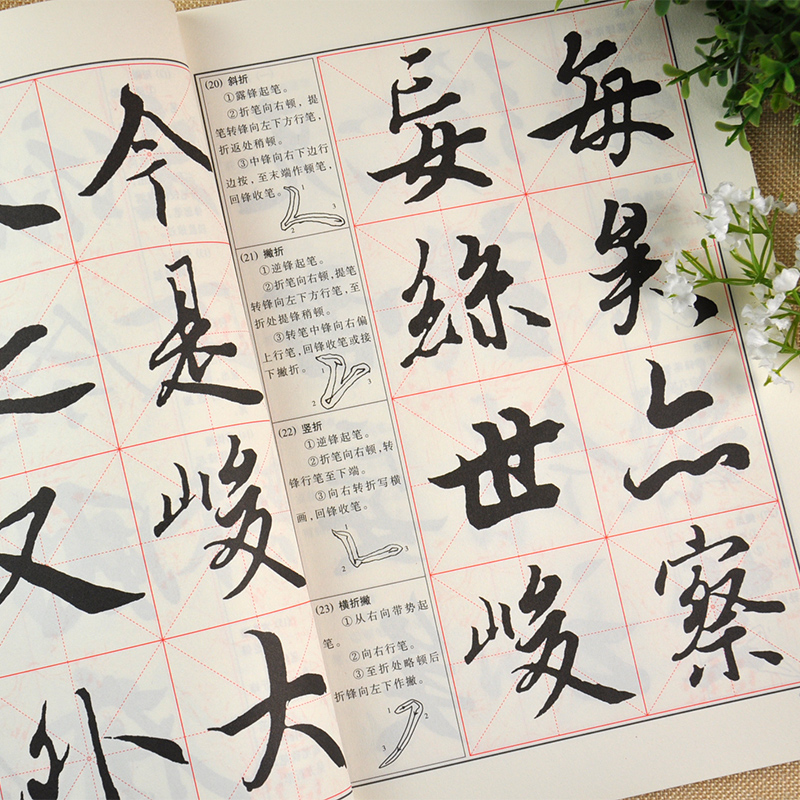 今
是
又
峻
外
大
(20) 斜折
①露锋起笔。
②折笔向右顿，提
笔转锋向左下方行笔，
折返处稍顿。
③中锋向右下边行
边按，至末端作顿笔，
回锋收笔。
1
2
3
(21) 撇折
①逆锋起笔。
②折笔向右顿，提笔
转锋向左下方行笔，至
折处提锋稍顿。
③转笔中锋向右偏
上行笔，回锋收笔或接
下撇折。
1
2
3
(22) 竖折
①逆锋起笔。
②折笔向右顿，转
锋行笔至下端。
③向右转折写横
画，回锋收笔。
1
2
3
(23) 横折撇
①从右向带势起
笔。
②向右行笔。
③至折处略顿后
折锋向左下作撇。
1
2
3
妄 每
絲
世 亦
峻 察